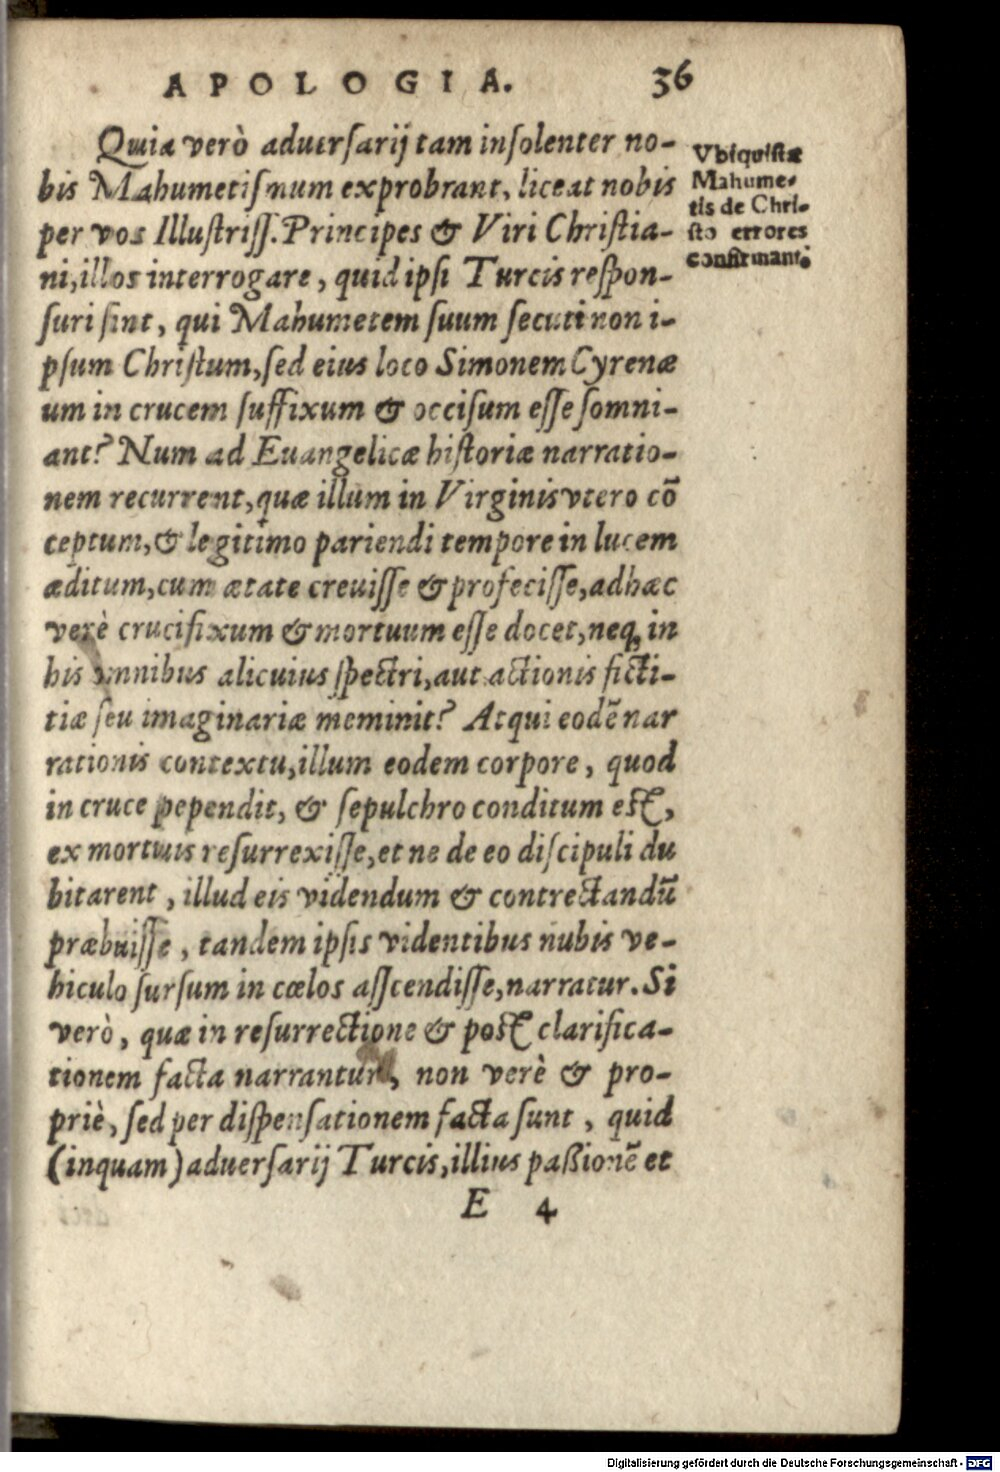 APOLOGIA. 36
Quia verò aduersarij tam insolenter no-
bis Mahumetismum exprobrant, liceat nobis
per vos Illustriss. Principes & Viri Christia-
ni, illos interrogare, quid ipsi Turcis respon-
suri sint, qui Mahumetem suum secuti non i-
psum Christum, sed eius loco Simonem Cyrenæ
um in crucem suffixum & occisum esse somni-
ant? Num ad Euangelicæ historiæ narratio-
nem recurrent, quæ illum in Virginis vtero cō
ceptum, & legitimo pariendi tempore in lucem
æditum, cum ætate creuisse & profecisse, adhæc
verè crucifixum & mortuum esse docet, neq; in
his omnibus alicuius spectri, aut actionis ficti-
tiæ seu imaginariæ meminit? Atqui eodē nar
rationis contextu, illum eodem corpore, quod
in cruce pependit, & sepulchro conditum est,
ex mortuis resurrexisse, et ne de eo discipuli du
bitarent, illud eis videndum & contrectandū
præbuisse, tandem ipsis videntibus nubis ve-
hiculo sursum in cœlos asscendisse, narratur. Si
verò, quæ in resurrectione & post clarifica-
tionem facta narrantur, non verè & pro-
priè, sed per dispensationem facta sunt, quid
(inquam) aduersarij Turcis, illius paßionē et
E 4
Vbiquistæ
Mahume-
tis de Chri-
sto errores
confirmant.
Digitalisierung gefördert durch die Deutsche Forschungsgemeinschaft - DFG